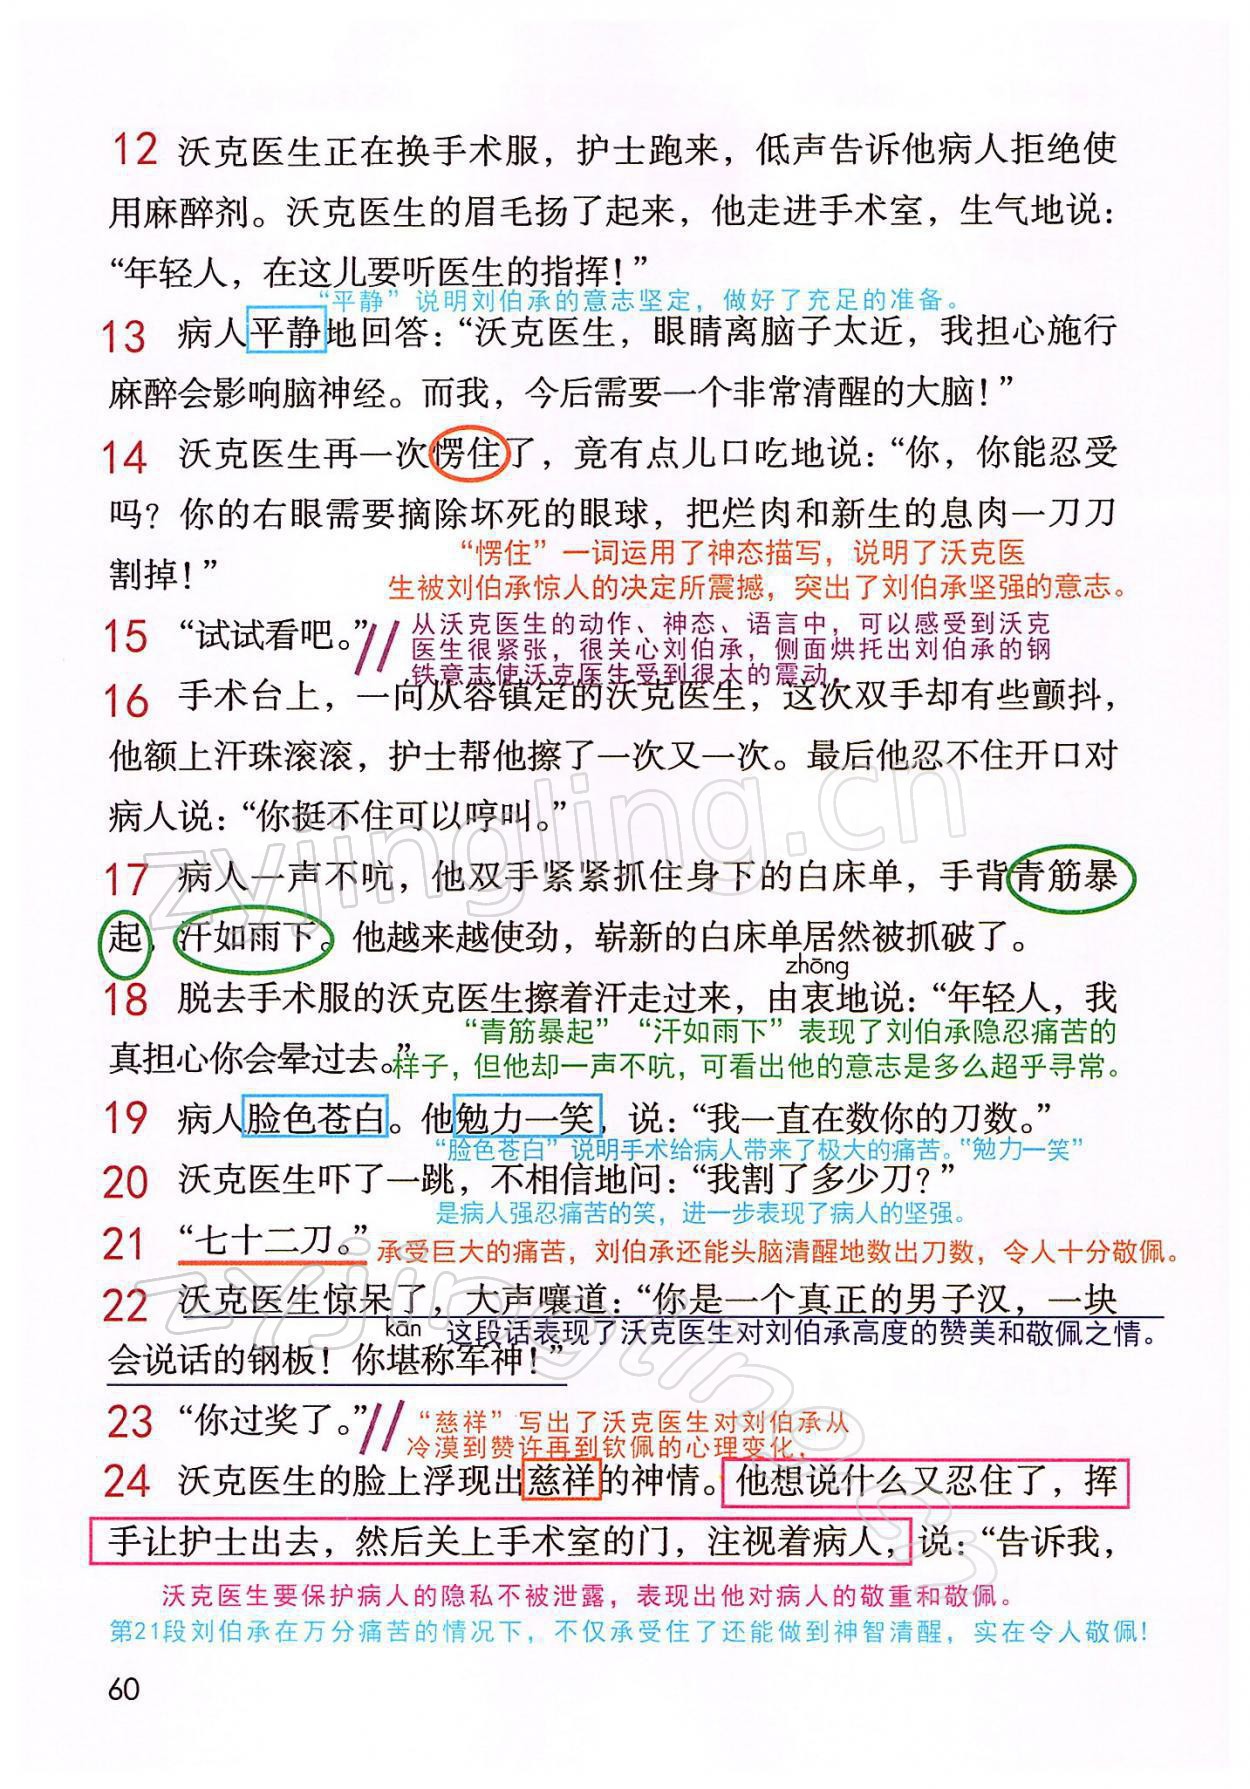 12 沃克医生正在换手术服，护士跑来，低声告诉他病人拒绝使
用麻醉剂。沃克医生的眉毛扬了起来，他走进手术室，生气地说：
“年轻人，在这儿要听医生的指挥！”
“平静”说明刘伯承的意志坚定，做好了充足的准备。
13 病人平静地回答：“沃克医生，眼睛离脑子太近，我担心施行
麻醉会影响脑神经。而我，今后需要一个非常清醒的大脑！”
14 沃克医生再一次愣住了，竟有点儿口吃地说：“你，你能忍受
吗？你的右眼需要摘除坏死的眼球，把烂肉和新生的息肉一刀刀
割掉！”
“愣住”一词运用了神态描写，说明了沃克医
生被刘伯承惊人的决定所震撼，突出了刘伯承坚强的意志。
15 “试试看吧。”
从沃克医生的动作、神态、语言中，可以感受到沃克
医生很紧张，很关心刘伯承，侧面烘托出刘伯承的钢
铁意志使沃克医生受到很大的震动。
16 手术台上，一向从容镇定的沃克医生，这次双手却有些颤抖，
他额上汗珠滚滚，护士帮他擦了一次又一次。最后他忍不住开口对
病人说：“你挺不住可以哼叫。”
17 病人一声不吭，他双手紧紧抓住身下的白床单，手背青筋暴
起，汗如雨下。他越来越使劲，崭新的白床单居然被抓破了。
zhōng
18 脱去手术服的沃克医生擦着汗走过来，由衷地说：“年轻人，我
真担心你会晕过去。”
“青筋暴起”“汗如雨下”表现了刘伯承隐忍痛苦的
样子，但他却一声不吭，可看出他的意志是多么超乎寻常。
19 病人脸色苍白。他勉力一笑，说：“我一直在数你的刀数。”
“脸色苍白”说明手术给病人带来了极大的痛苦。“勉力一笑”
20 沃克医生吓了一跳，不相信地问：“我割了多少刀？”
是病人强忍痛苦的笑，进一步表现了病人的坚强。
21 “七十二刀。”
承受巨大的痛苦，刘伯承还能头脑清醒地数出刀数，令人十分敬佩。
22 沃克医生惊呆了，大声嚷道：“你是一个真正的男子汉，一块
kān
这段话表现了沃克医生对刘伯承高度的赞美和敬佩之情。
会说话的钢板！你堪称军神！”
23 “你过奖了。”
“慈祥”写出了沃克医生对刘伯承从
冷漠到赞许再到钦佩的心理变化，
24 沃克医生的脸上浮现出慈祥的神情。他想说什么又忍住了，挥
手让护士出去，然后关上手术室的门，注视着病人，说：“告诉我，
沃克医生要保护病人的隐私不被泄露，表现出他对病人的敬重和敬佩。
第21段刘伯承在万分痛苦的情况下，不仅承受住了还能做到神智清醒，实在令人敬佩！
60
zyjingling.cn
zyjingling.cn